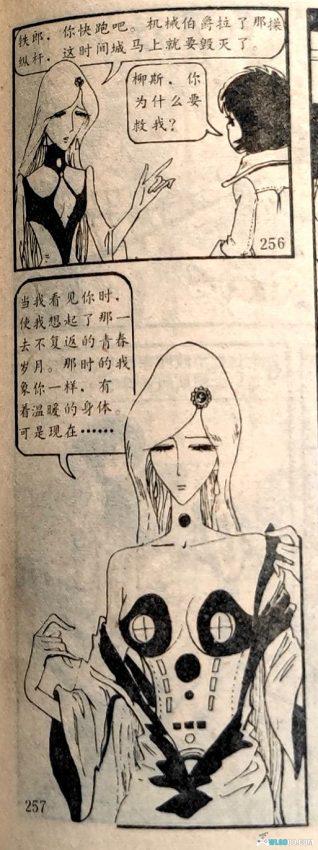 铁郎，你快跑吧。机械伯爵拉了那操
纵杆，这时间城马上就要毁灭了。
柳斯，你
为什么要
救我？
256
当我看见你时，
使我想起了那一
去不复返的青春
岁月。那时的我
象你一样，有
着温暖的身体。
可是现在……
257